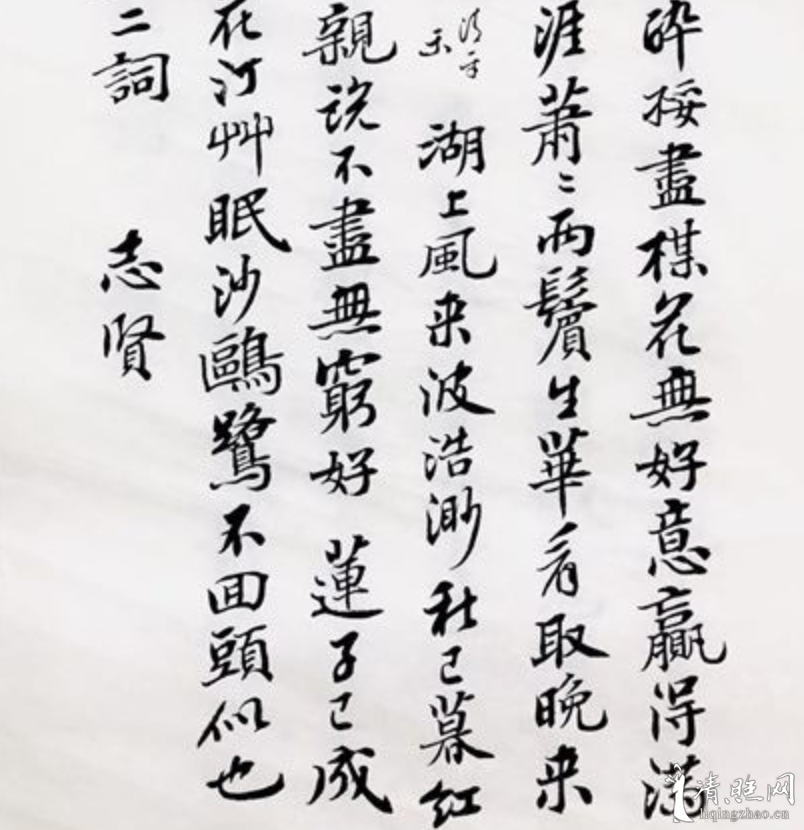 醉挼盡楳花無好意贏得滿
涯蕭〻兩鬢生華看取晚来
湖上風来波浩渺秋已暮紅
親説不盡無窮好 蓮子已成
花汀艸眠沙鷗鷺不回頭似也
二詞 志賢
liqingzhao.cn